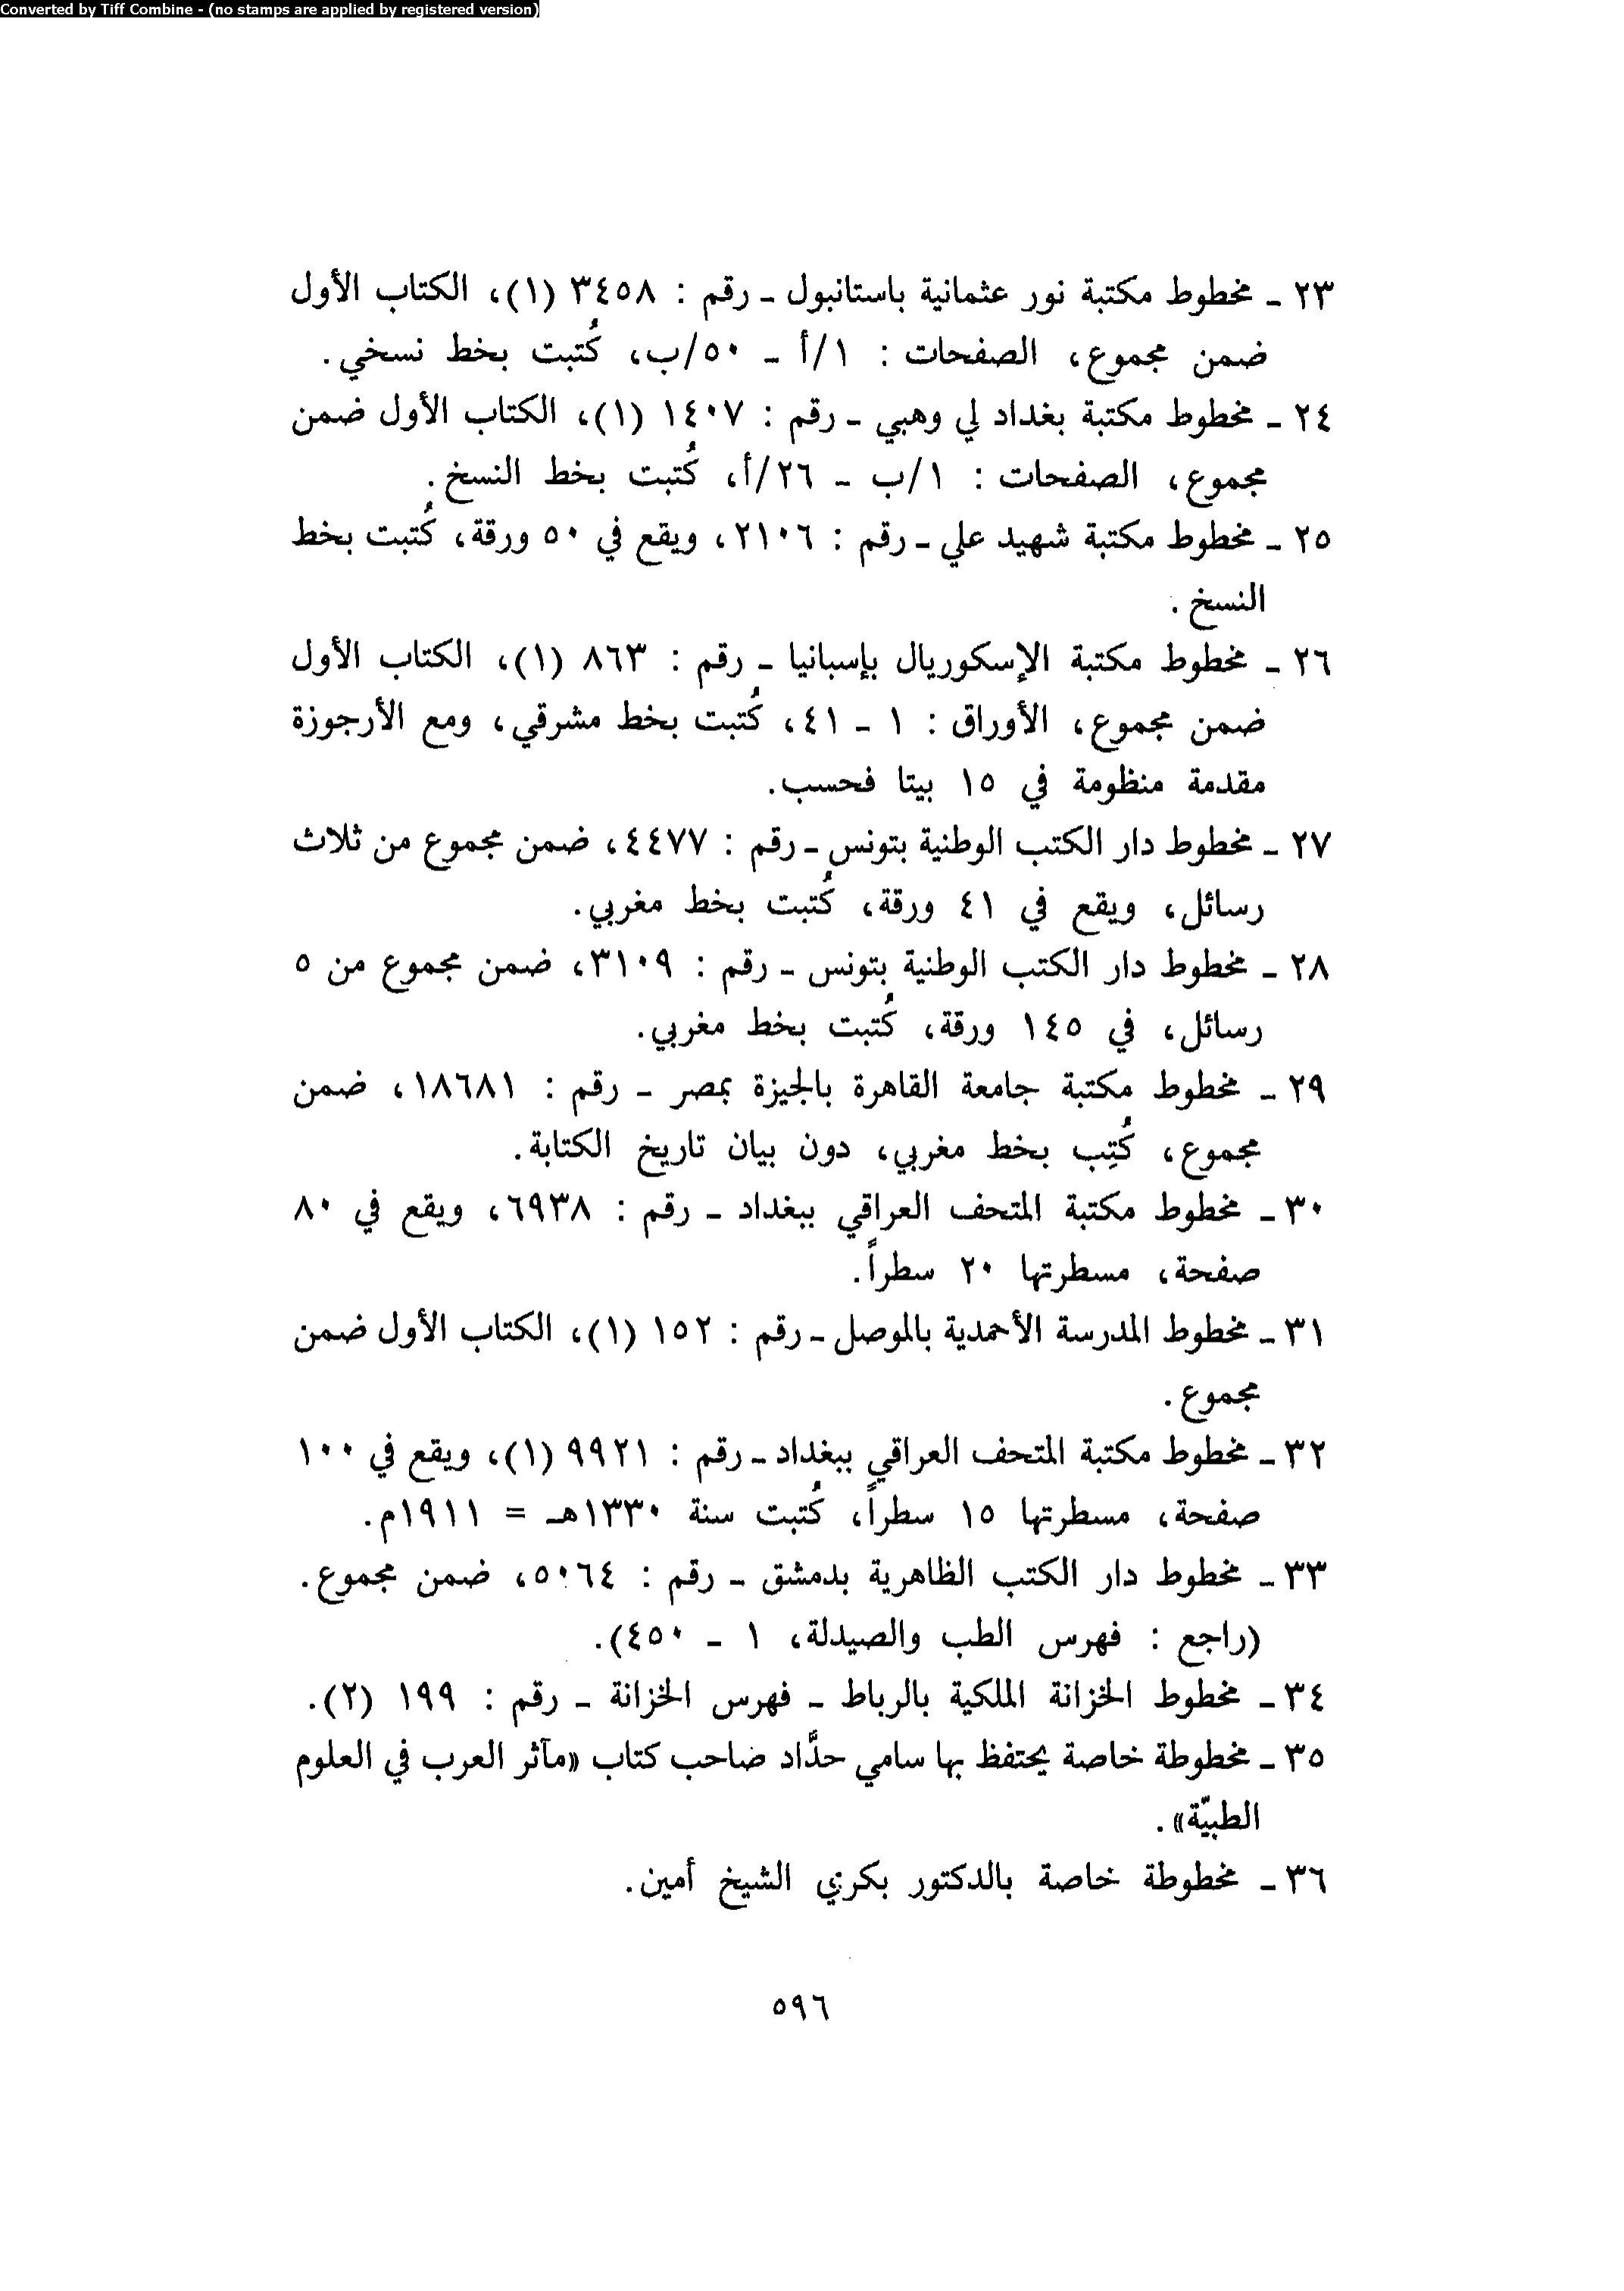 Converted by Tiff Combine - (no stamps are applied by registered version)
٢٣ ـ مخطوط مكتبة نور عثمانية باستانبول ـ رقم : ٣٤٥٨ (١)، الكتاب الأول
ضمن مجموع، الصفحات : ١/أ ـ ٥٠/ب، كُتبت بخط نسخي.
٢٤ ـ مخطوط مكتبة بغداد لي وهبي ـ رقم : ١٤٠٧ (١)، الكتاب الأول ضمن
مجموع، الصفحات : ١/ب ـ ٢٦/أ، كُتبت بخط النسخ.
٢٥ ـ مخطوط مكتبة شهيد علي ـ رقم : ٢١٠٦، ويقع في ٥٠ ورقة، كُتبت بخط
النسخ.
٢٦ ـ مخطوط مكتبة الإسكوريال بإسبانيا ـ رقم : ٨٦٣ (١)، الكتاب الأول
ضمن مجموع، الأوراق : ١ ـ ٤١، كُتبت بخط مشرقي، ومع الأرجوزة
مقدمة منظومة في ١٥ بيتا فحسب.
٢٧ ـ مخطوط دار الكتب الوطنية بتونس ـ رقم : ٤٤٧٧، ضمن مجموع من ثلاث
رسائل، ويقع في ٤١ ورقة، كُتبت بخط مغربي.
٢٨ ـ مخطوط دار الكتب الوطنية بتونس ـ رقم : ٣١٠٩، ضمن مجموع من ٥
رسائل، في ١٤٥ ورقة، كُتبت بخط مغربي.
٢٩ ـ مخطوط مكتبة جامعة القاهرة بالجيزة بمصر ـ رقم : ١٨٦٨١، ضمن
مجموع، كُتِب بخط مغربي، دون بيان تاريخ الكتابة.
٣٠ ـ مخطوط مكتبة المتحف العراقي ببغداد ـ رقم : ٦٩٣٨، ويقع في ٨٠
صفحة، مسطرتها ٢٠ سطراً.
٣١ ـ مخطوط المدرسة الأحمدية بالموصل ـ رقم : ١٥٢ (١)، الكتاب الأول ضمن
مجموع.
٣٢ ـ مخطوط مكتبة المتحف العراقي ببغداد ـ رقم : ٩٩٢١ (١)، ويقع في ١٠٠
صفحة، مسطرتها ١٥ سطراً، كُتبت سنة ١٣٣٠هـ = ١٩١١م.
٣٣ ـ مخطوط دار الكتب الظاهرية بدمشق ـ رقم : ٥٠٦٤، ضمن مجموع.
(راجع : فهرس الطب والصيدلة، ١ ـ ٤٥٠).
٣٤ ـ مخطوط الخزانة الملكية بالرباط ـ فهرس الخزانة ـ رقم : ١٩٩ (٢).
٣٥ ـ مخطوطة خاصة يحتفظ بها سامي حدَّاد صاحب كتاب «مآثر العرب في العلوم
الطبيّة».
٣٦ ـ مخطوطة خاصة بالدكتور بكري الشيخ أمين.
٥٩٦